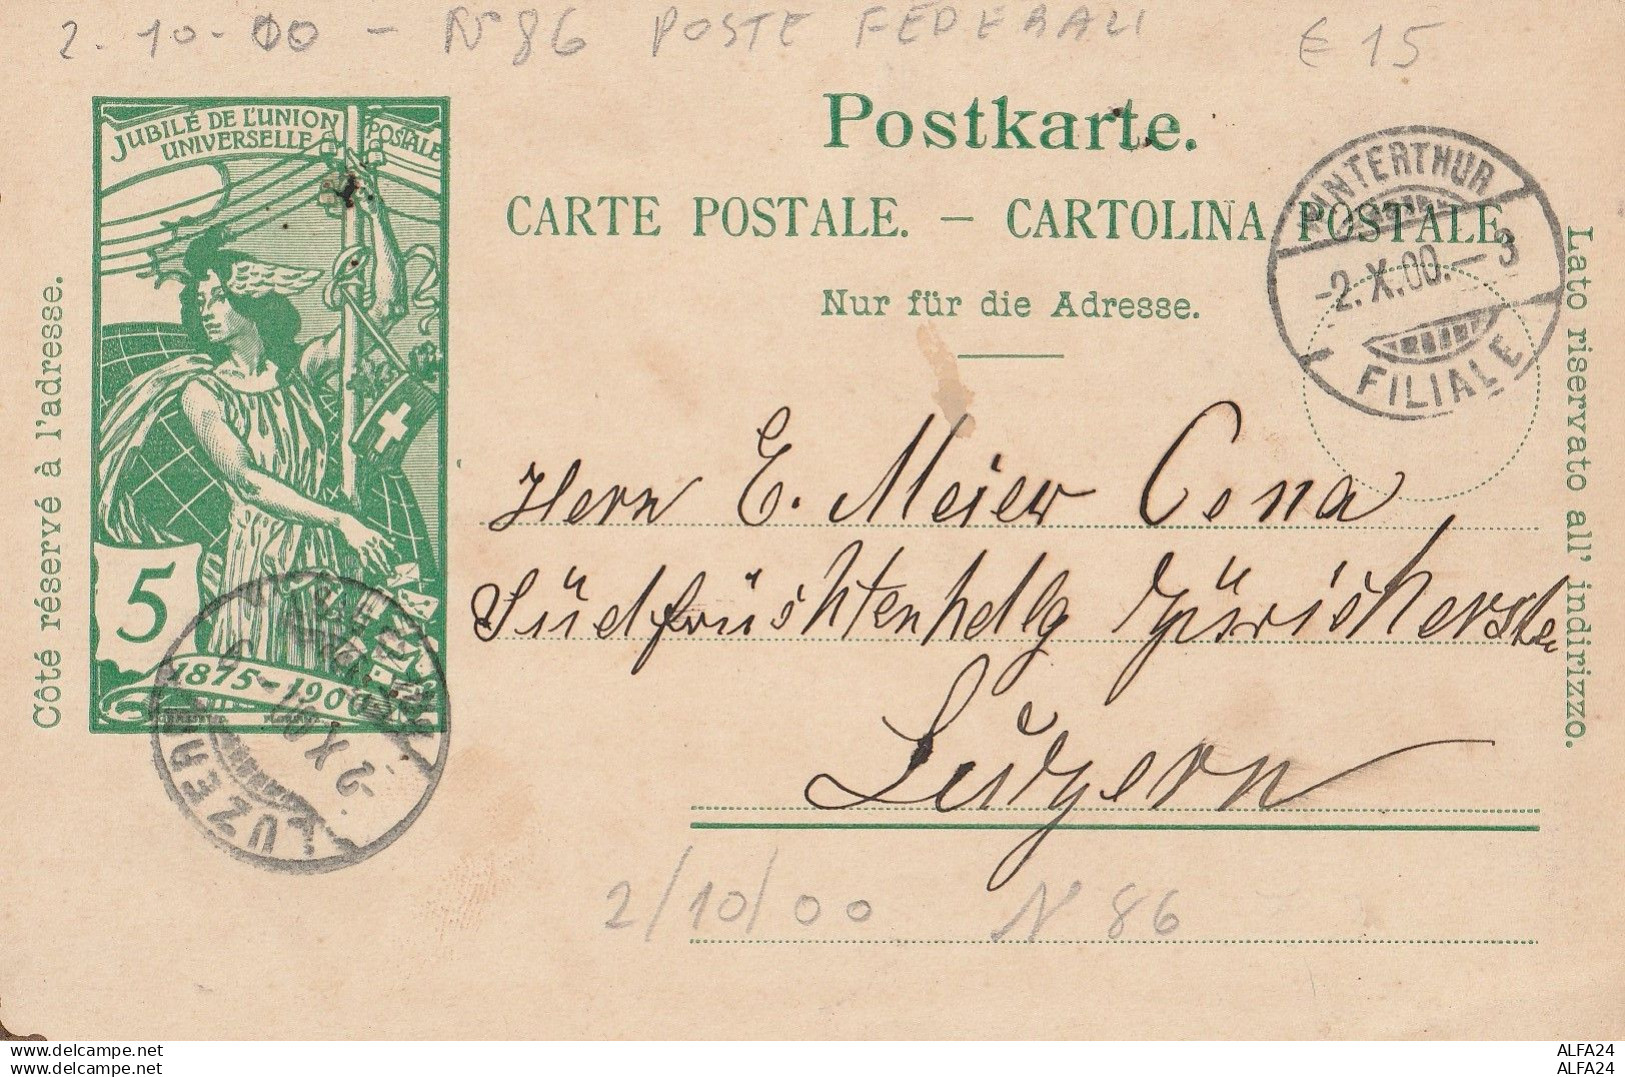 2.10.00 - N 86 POSTE FEDERALI € 15
JUBILÉ DE L'UNION
POSTALE
UNIVERSELLE
Postkarte.
CARTE POSTALE. — CARTOLINA POSTALE.
Nur für die Adresse.
WINTERTHUR
-2.X.00.—3
FILIALE
Côté réservé à l'adresse.
Lato riservato all' indirizzo.
5
1875-1900
LUZERN
-2.X.00.
Herrn E. Meier Cona
Südfrüchtenhdlg Züricherstr
Luzern
2/10/00 N 86
www.delcampe.net
ALFA24
www.delcampe.net
ALFA24